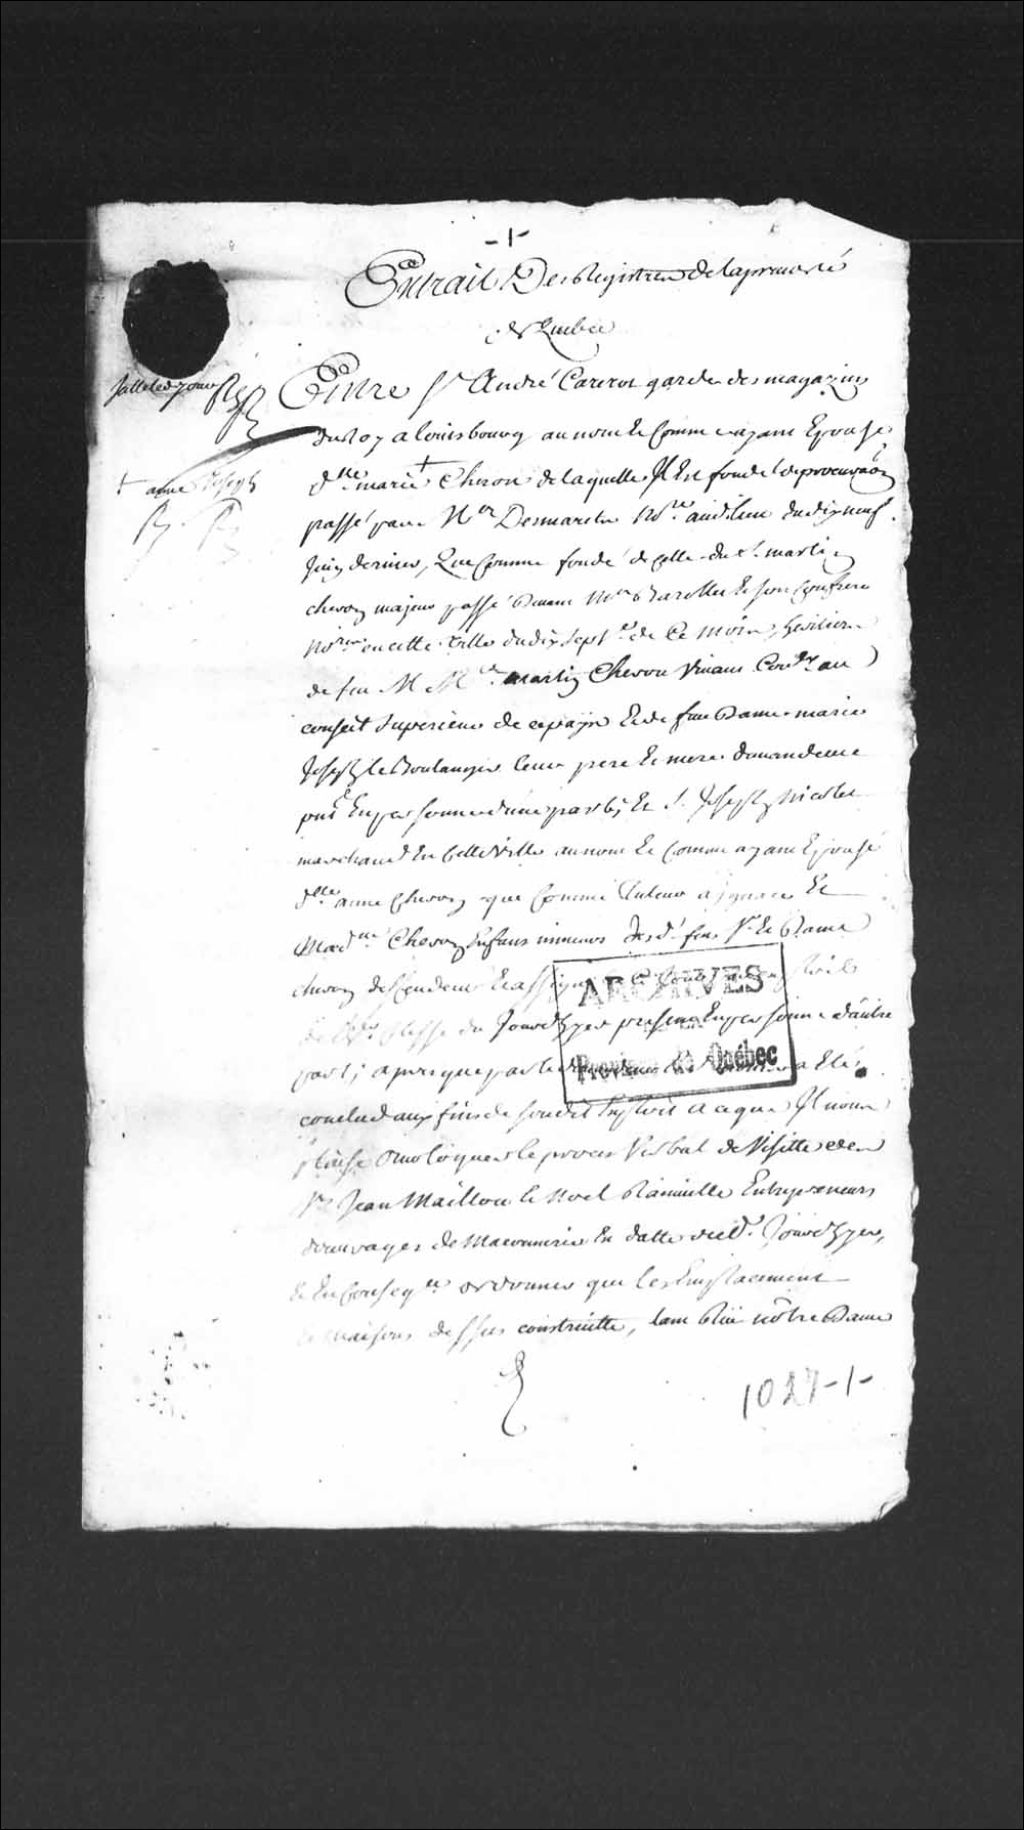 -1-
Extrait Des Registres de la prevosté
de Quebec
Entre Sr André Carerot garde des magazins
du Roy a Louisbourg au nom et comme ayant Epousé
+ anne Joseph
dlle marie + Cheron de laquelle Il Est fondé de procuraõn
passé par Mer Desmarest Nore audit lieu du dix neuf
Juin dernier, Que comme fondé de celle du Sr martin
cheron majeur passé devant Mer Barollet et son confrere
Nores en cette ville du dix sept de Ce mois, heritiers
de feu M Mre martin Cheron vivant Coner au
conseil superieur de ce païs et de feue Dame marie
Joseph le Boulanger leur pere et mere demandeur
pnt En personne d'une part; Et Sr Joseph Nicolet
marchand En cette ville au nom et comme ayant Epousé
dlle anne Cheron que comme Tuteur a Ignace Et
Madne Cheron Enfans mineurs desd. feu Sr et Dame
cheron deffendeur Et assigné
du Jourdhyer present En personne d'autre
part; apres que par le demandeur a Eté
conclud aux fins de son dit Exploit a ce que Il nous
plaise omologuer le procez verbal de visitte des
Srs Jean Maillou et Noel Rainville Entrepreneurs
d'ouvrages de Maconnerie En datte dud. Jourdhyer,
Et En conseqce ordonner que les Emplacement
et maisons dessus construitte, tant Rüe nôtre Dame
ARCHIVES
Province de Québec
1027-1-